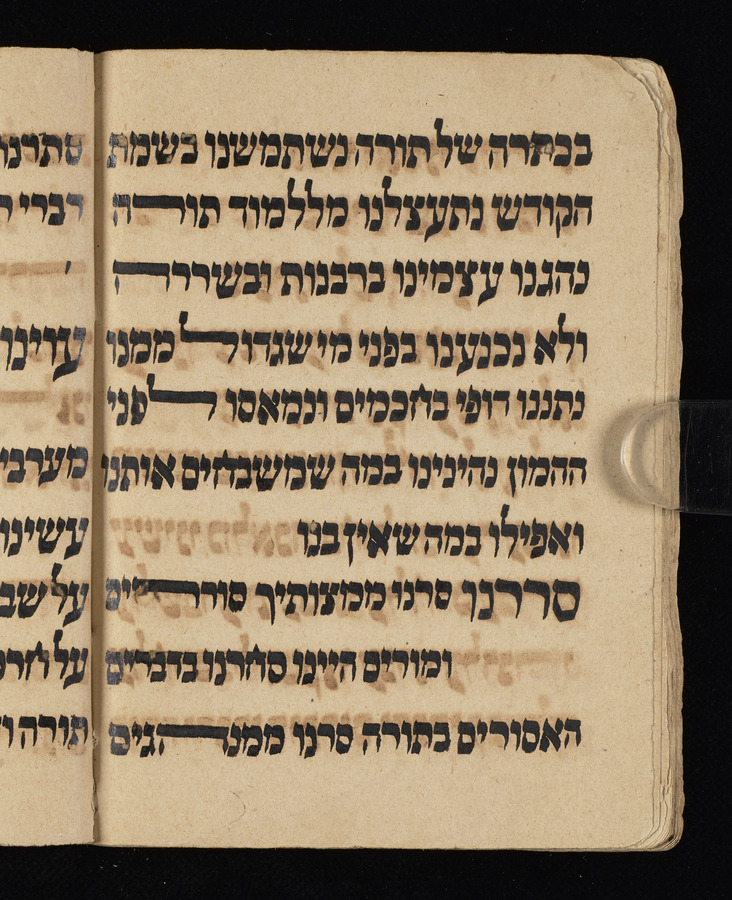 בכתרה של תורה נשתמשנו בשמת
הקודש נתעצלנו מללמוד תורה
נהגנו עצמינו ברבנות ובשררה
ולא נכנענו בפני מי שגדול ממנו
נתננו דופי בחכמים ונמאסו לפני
ההמון נהינינו במה שמשבחים אותנו
ואפילו במה שאין בנו
סררנו סרנו ממצותיך סוררים
ומורים היינו סחרנו בדברים
האסורים בתורה סרנו ממנהגים
סתרנו
דברי
עוינו
מערבי
עשינו
על שב
על
תורה